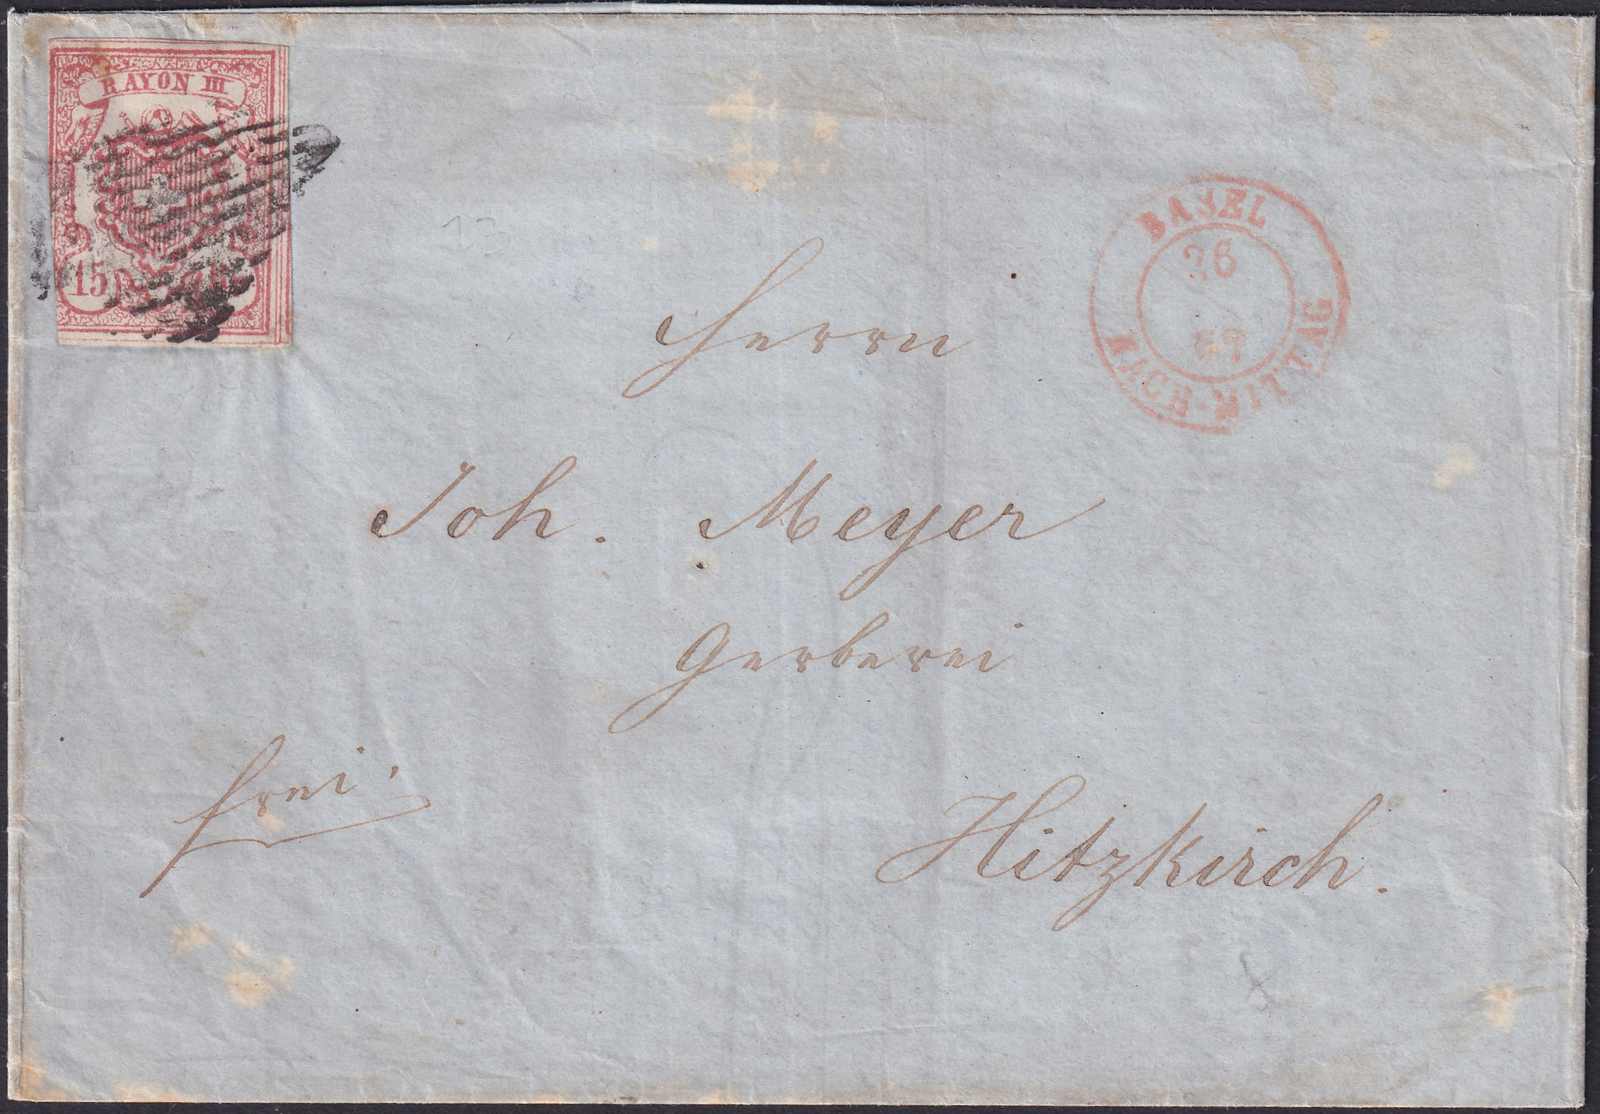 RAYON III
15
BASEL
26
NACH-MITTAG
Herrn
Joh. Meyer
Gerberei
frei.
Hitzkirch.